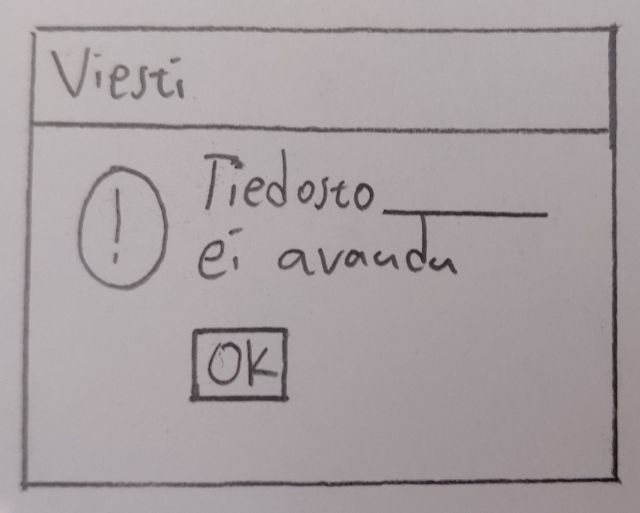 Viesti
! Tiedosto_______
ei avaudu
OK